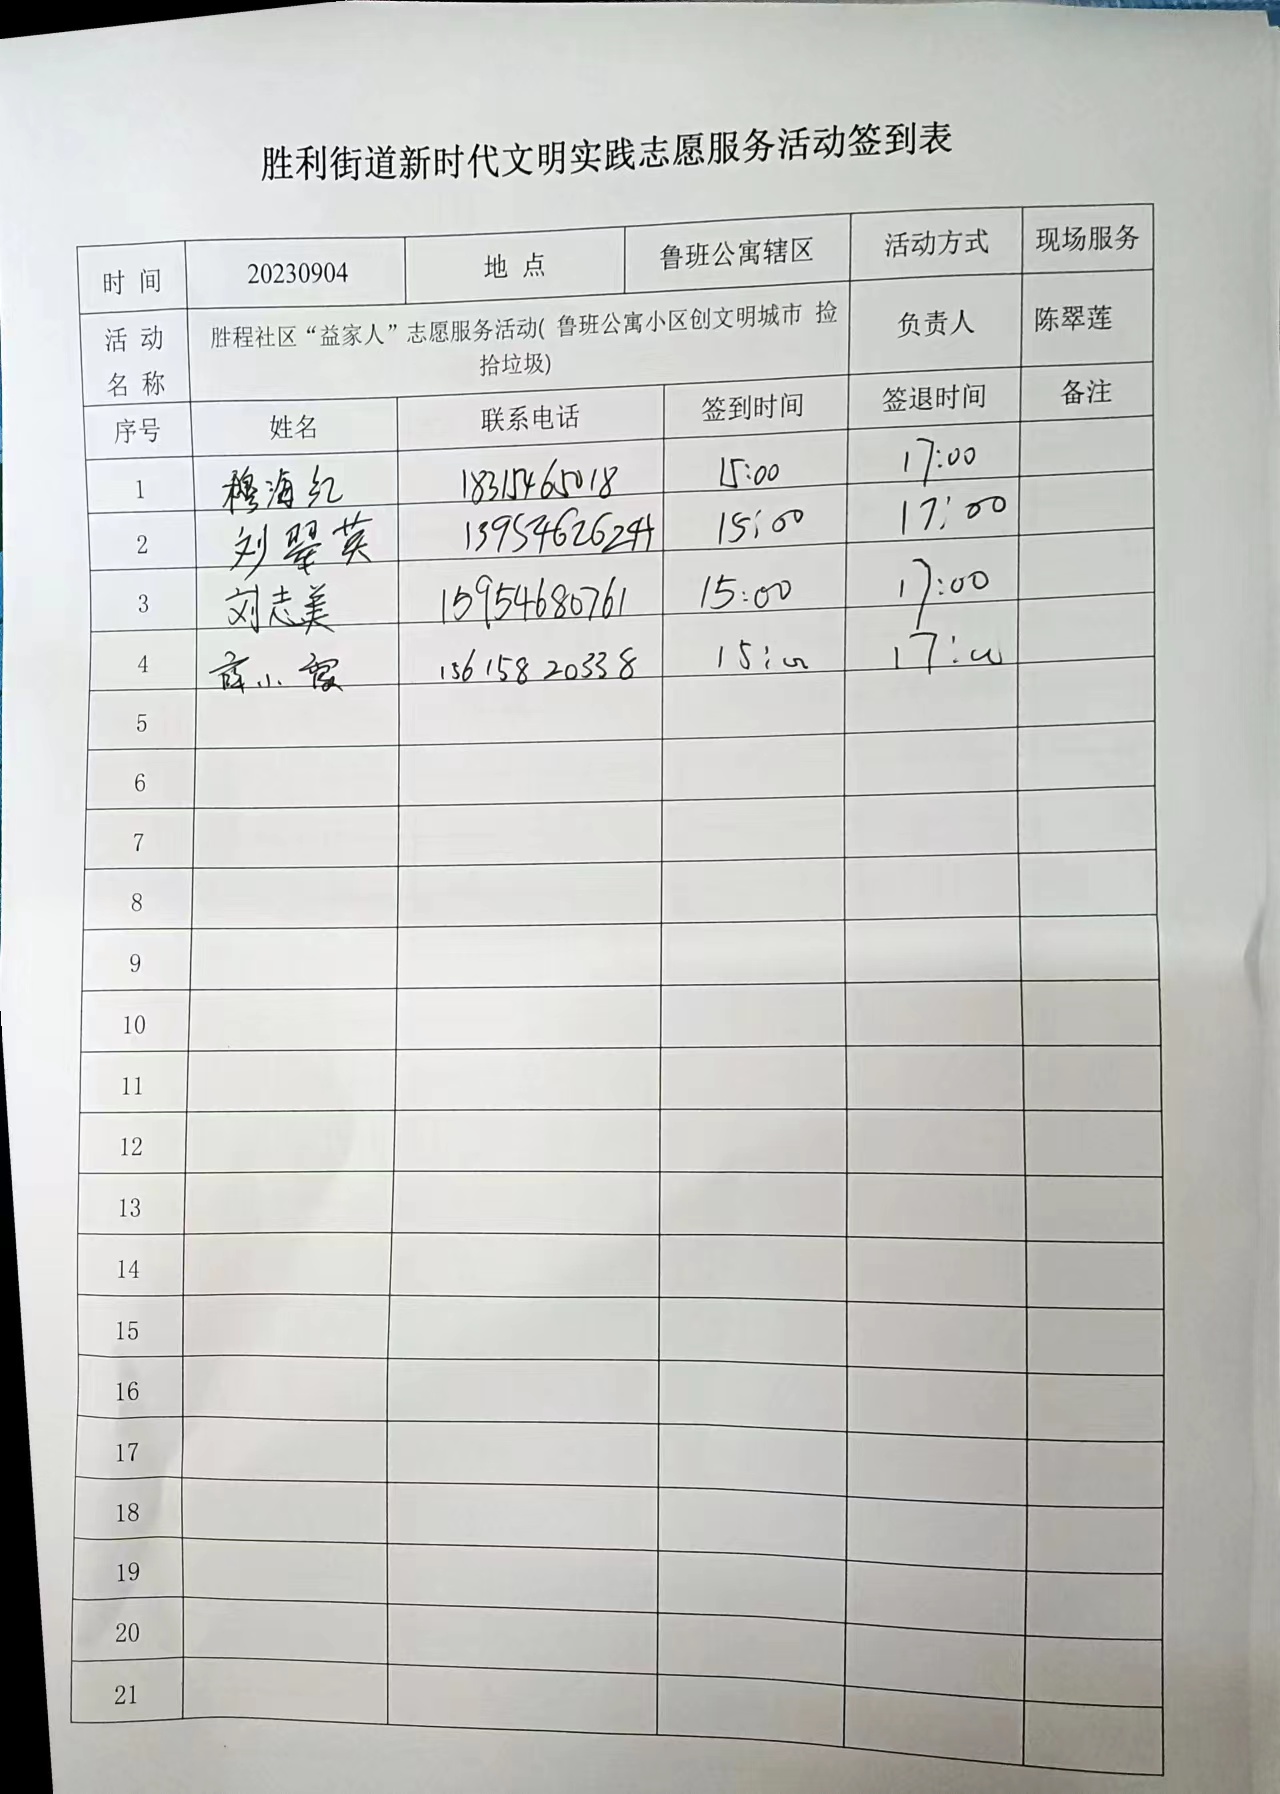 胜利街道新时代文明实践志愿服务活动签到表
时 间 20230904 地 点 鲁班公寓辖区 活动方式 现场服务
活 动 名 称 胜程社区“益家人”志愿服务活动( 鲁班公寓小区创文明城市 捡 负责人 陈翠莲
拾垃圾)
序号 姓名 联系电话 签到时间 签退时间 备注
1 穆海红 18315465018 15:00 17:00
2 刘翠英 15:00 17:00
3 刘志美 15954680761 15:00 17:00
4 薛小霞 15615820338 15:00 17:00
5
6
7
8
9
10
11
12
13
14
15
16
17
18
19
20
21